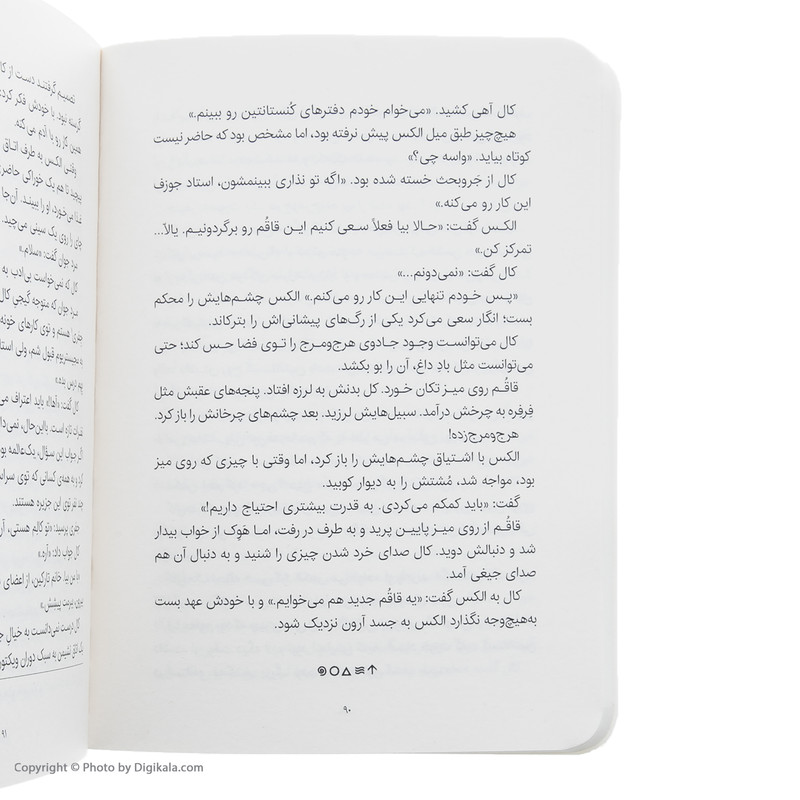 کال آهی کشید. «می‌خوام خودم دفترهای کُنستانتین رو ببینم.»
هیچ‌چیز طبق میل الکس پیش نرفته بود، اما مشخص بود که حاضر نیست
کوتاه بیاید. «واسه چی؟»
کال از جَروبحث خسته شده بود. «اگه تو نذاری ببینمشون، استاد جوزف
این کار رو می‌کنه.»
الکس گفت: «حالا بیا فعلاً سعی کنیم این قاقُم رو برگردونیم. یالاّ...
تمرکز کن.»
کال گفت: «نمی‌دونم...»
«پس خودم تنهایی این کار رو می‌کنم.» الکس چشم‌هایش را محکم
بست؛ انگار سعی می‌کرد یکی از رگ‌های پیشانی‌اش را بترکاند.
کال می‌توانست وجود جادوی هرج‌ومرج را توی فضا حس کند؛ حتی
می‌توانست مثل بادِ داغ، آن را بو بکشد.
قاقُم روی میز تکان خورد. کل بدنش به لرزه افتاد. پنجه‌های عقبش مثل
فِرفِره به چرخش درآمد. سبیل‌هایش لرزید. بعد چشم‌های چرخانش را باز کرد.
هرج‌ومرج‌زده!
الکس با اشتیاق چشم‌هایش را باز کرد، اما وقتی با چیزی که روی میز
بود، مواجه شد، مُشتش را به دیوار کوبید.
گفت: «باید کمکم می‌کردی. به قدرت بیشتری احتیاج داریم!»
قاقُم از روی میز پایین پرید و به طرف در رفت، اما هَوِک از خواب بیدار
شد و دنبالش دوید. کال صدای خرد شدن چیزی را شنید و به دنبال آن هم
صدای جیغی آمد.
کال به الکس گفت: «یه قاقُم جدید هم می‌خوایم.» و با خودش عهد بست
به‌هیچ‌وجه نگذارد الکس به جسد آرون نزدیک شود.
۹۰
تصمیم گرفتند دست از
گرسنه نبود. با خودش فکر
همین کار رو با آدم می کنه.
وقتی الکس به طرف اتاق
مرد جوان گفت: «سلام.»
کال که نمی‌خواست بی‌ادب به
مرد جوان که متوجه گیجیِ کال
هستم و توی کارهای خونه
به مجیستریوم قبول شم، ولی
چند نفر توی این جزیره هستند.
جفری پرسید: «تو کالم هستی،
کال جواب داد: «آره.»
کال درست نمی‌دانست به خیال
۹۱
Copyright © Photo by Digikala.com